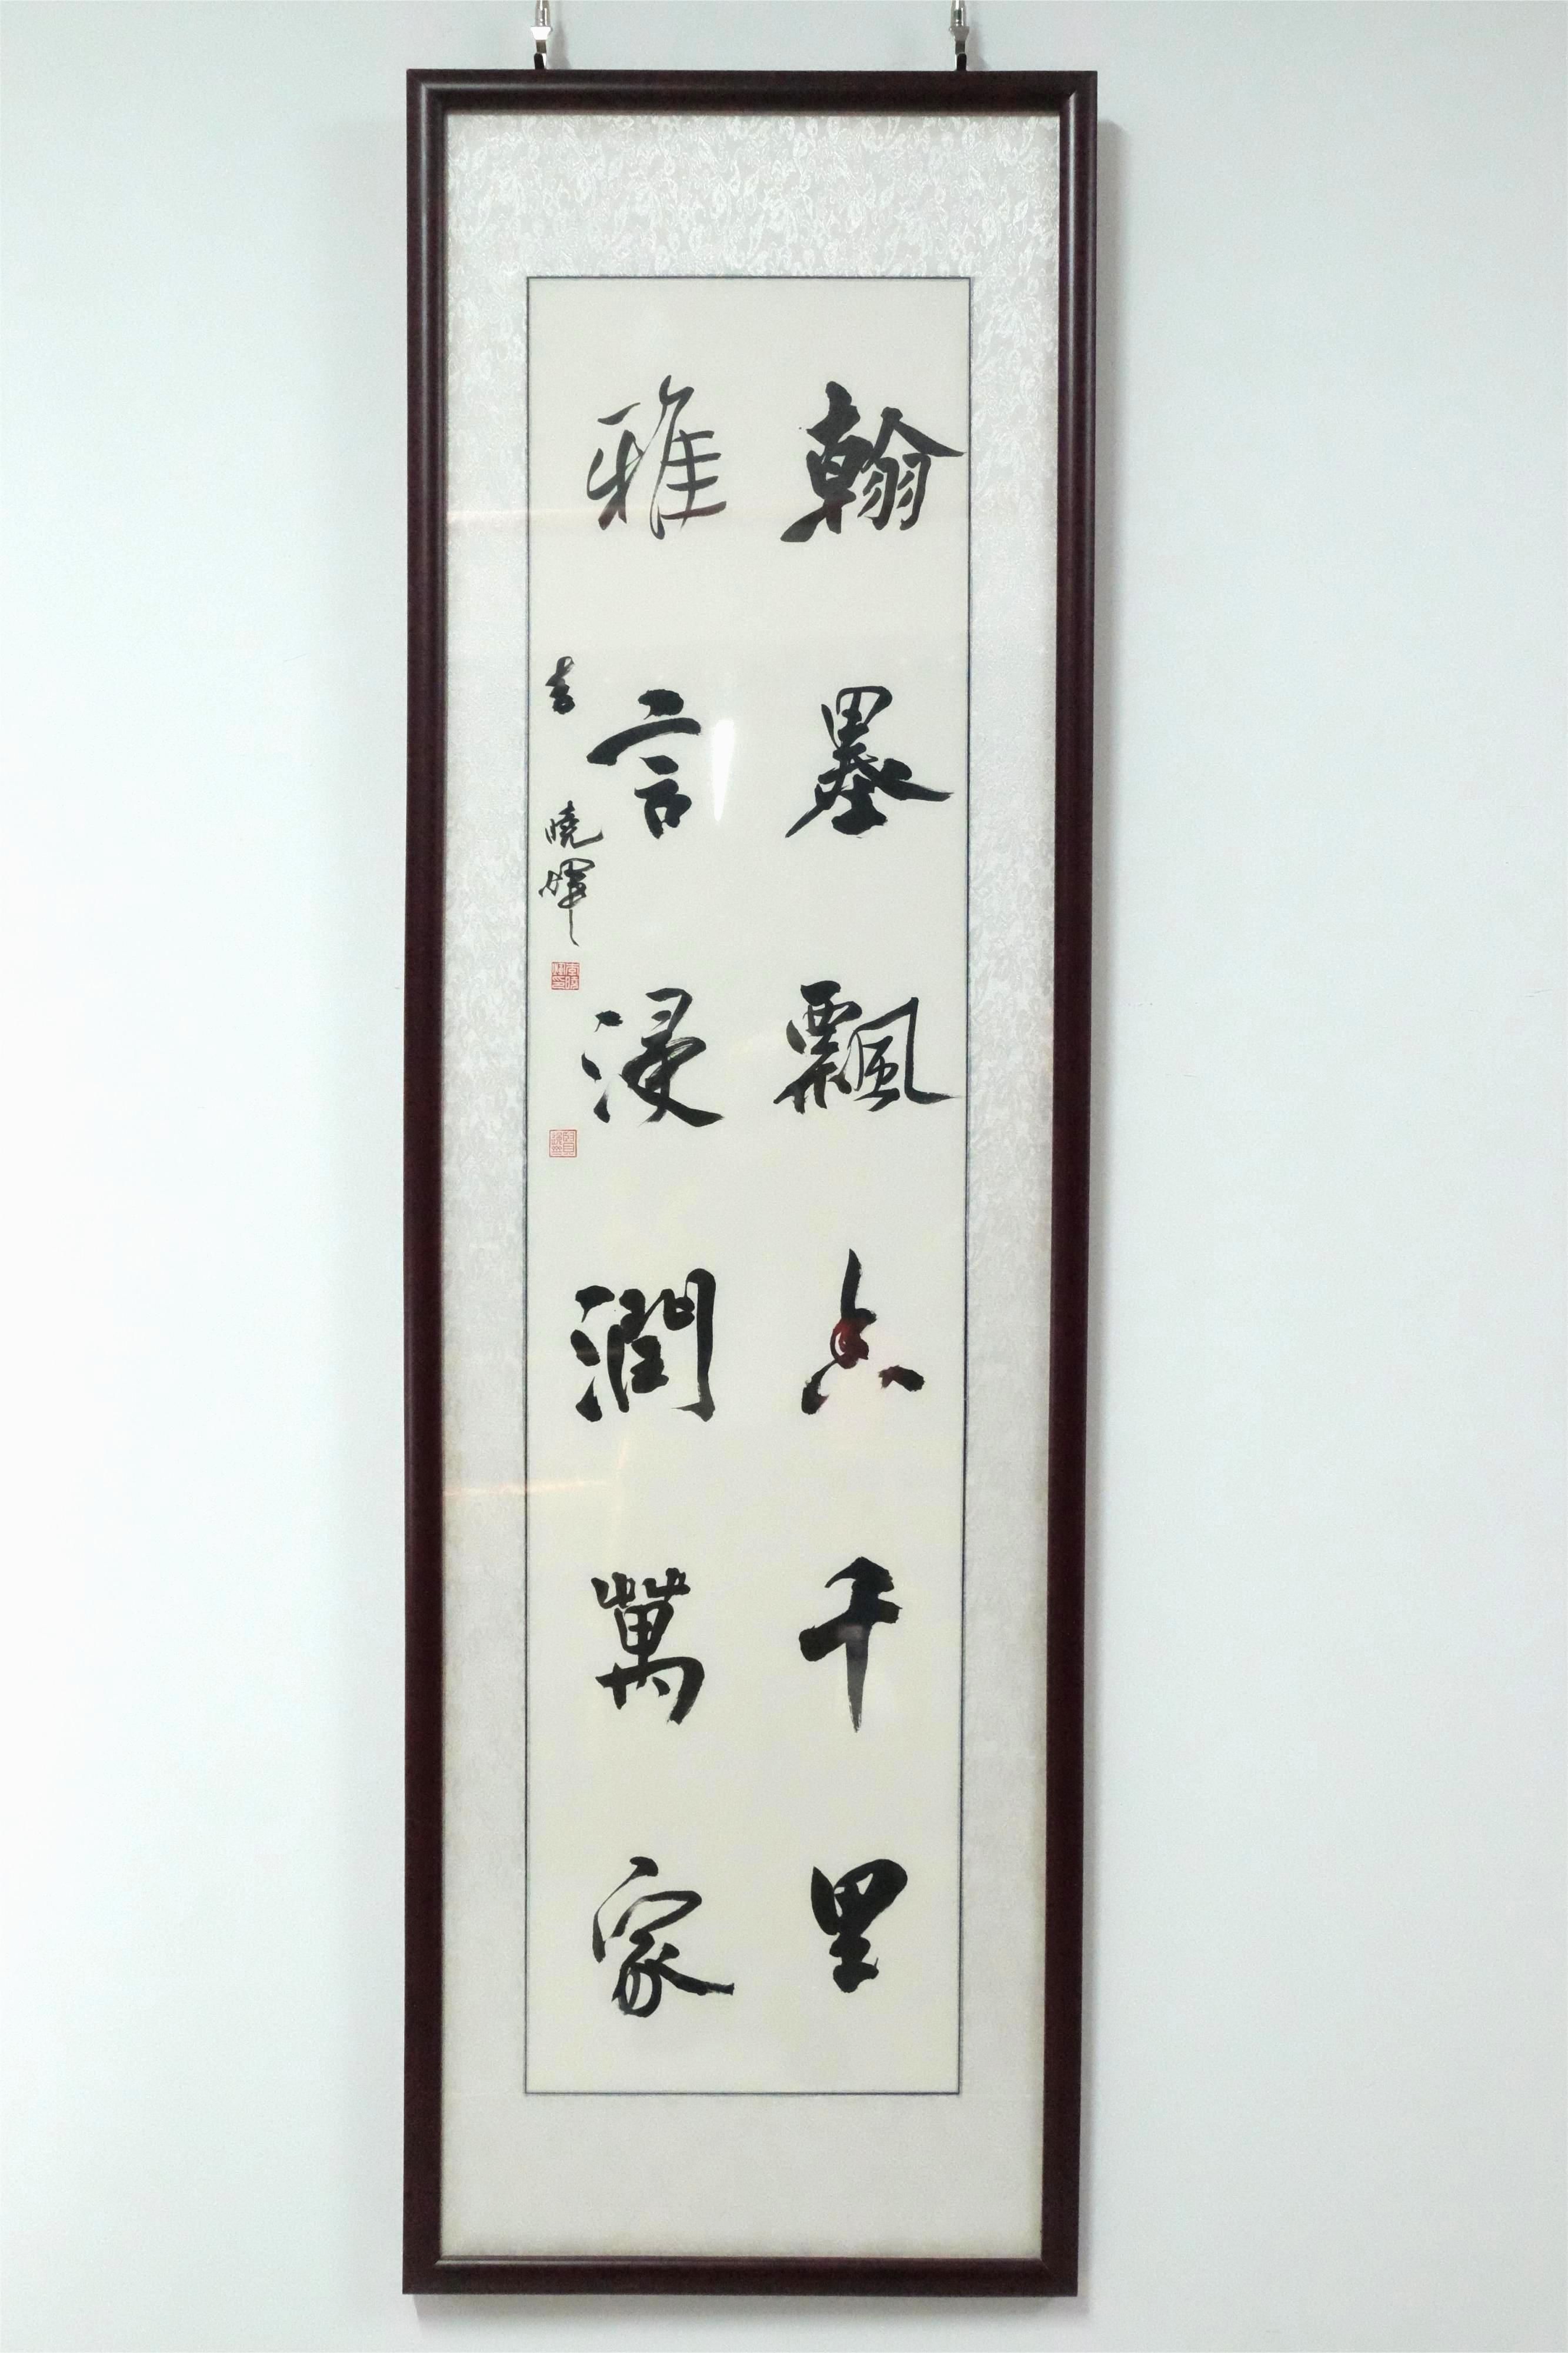 翰墨飄香千里
雅言浸潤萬家
曉暉